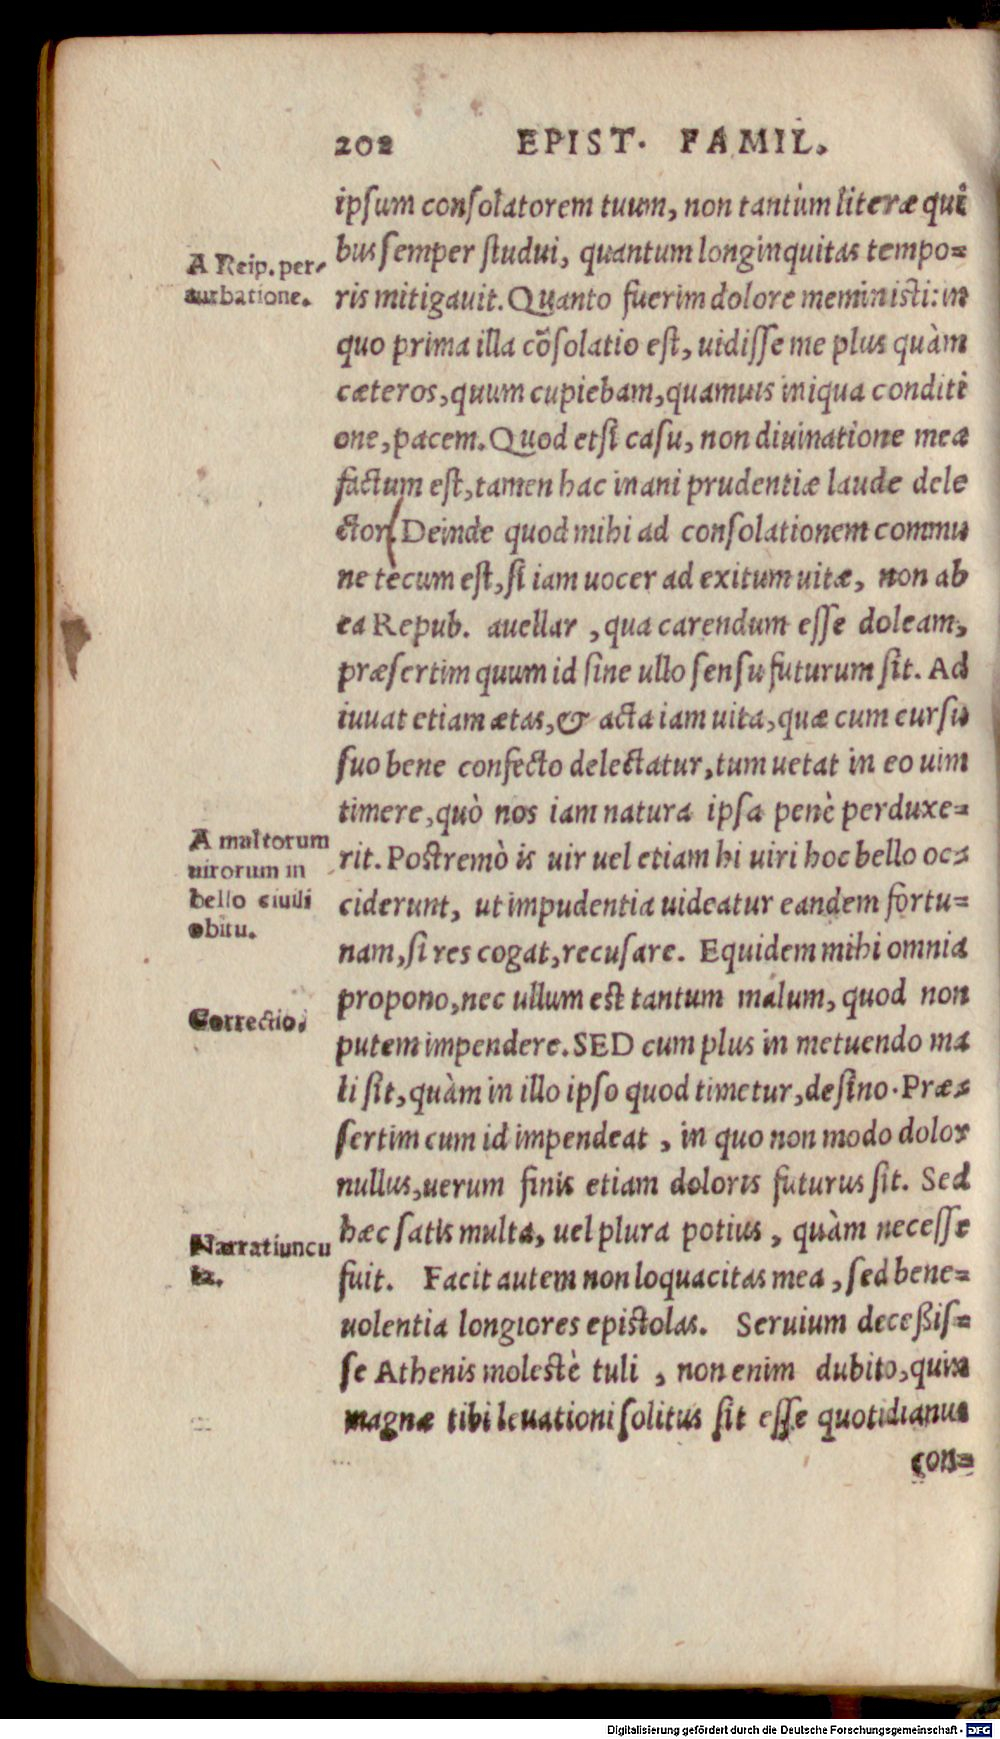 202 EPIST. FAMIL.
ipsum consolatorem tuum, non tantùm literæ qui
bus semper studui, quantum longinquitas tempo=
A Reip. per-
turbatione.
ris mitigauit. Quanto fuerim dolore meministi: in
quo prima illa cõsolatio est, uidisse me plus quàm
cæteros, quum cupiebam, quamuis iniqua conditi
one, pacem. Quod etsi casu, non diuinatione mea
factum est, tamen hac inani prudentiæ laude dele
ctor. Deinde quod mihi ad consolationem commu
ne tecum est, si iam uocer ad exitum uitæ, non ab
ea Repub. auellar, qua carendum esse doleam,
præsertim quum id sine ullo sensu futurum sit. Ad
iuuat etiam ætas, & acta iam uita, quæ cum cursu
suo bene confecto delectatur, tum uetat in eo uim
timere, quò nos iam natura ipsa penè perduxe=
A multorum
uirorum in
bello ciuili
obitu.
rit. Postremò is uir uel etiam hi uiri hoc bello oc=
ciderunt, ut impudentia uideatur eandem fortu=
nam, si res cogat, recusare. Equidem mihi omnia
propono, nec ullum est tantum malum, quod non
Correctio.
putem impendere. SED cum plus in metuendo ma
li sit, quàm in illo ipso quod timetur, desino. Præ=
sertim cum id impendeat, in quo non modo dolor
nullus, uerum finis etiam doloris futurus sit. Sed
hæc satis multa, uel plura potius, quàm necesse
Narratiuncu
la.
fuit. Facit autem non loquacitas mea, sed bene=
uolentia longiores epistolas. Seruium deceßis=
se Athenis molestè tuli, non enim dubito, quin
magnæ tibi leuationi solitus sit esse quotidianus
con=
Digitalisierung gefördert durch die Deutsche Forschungsgemeinschaft - DFG